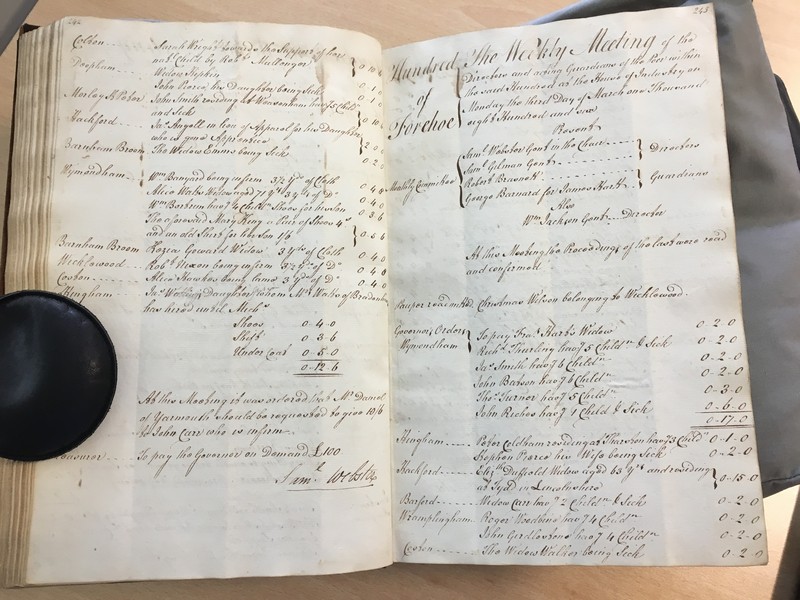 244
Colton Sarah Wright towards the Support of her
nat.l Child by Rob.t
Deopham Widow Stephen 0 1 0
John Pearce his Daughter being Sick 0 1 0
Morley St Peter John Smith residing at Weasenham hav.g 5 Child.n
and Sick
Hackford Ja.s Angell in lieu of Apparel for his Daughter
who is your Apprentice 2 0 0
Barnham Broom The Widow Emms being Sick 0 2 0
Wymondham W.m Banyard being infirm 3½ y.ds of Cloth 0 4 0
Alice Watts Widow aged 71 y.rs 3¼ of D.o 0 4 0
W.m hav.g 4 Child.n Shoes for his Son 0 3 6
The aforesaid Mary King a Pair of Shoes 4/
and an old Shirt for her Son 1/6
Barnham Broom Kozea Goward Widow 3 y.ds of Cloth 0 4 0
Wicklewood Rob.t Nixon being infirm 3½ y.ds of D.o 0 4 0
Coston Alice Hawkes being lame 3 y.ds of D.o 0 4 0
Hingham Ja.s Daughter whom M.r Watts of
has hired until Mich.s
Shoes 0 4 0
Shift 0 3 6
Under Coat 0 5 0
0 12 6
At this Meeting it was ordered that M.r Daniel
of Yarmouth should be requested to give 10/6
to John Carr who is infirm
Treasurer To pay the Governor on Demand £100
Sam.l Webster
245
Hundred of Forehoe
The Weekly Meeting of the
Directors and acting Guardians of the Poor within
the said Hundred at the House of Industry on
Monday the third Day of March one Thousand
eight Hundred and six
Present
Monthly Committee
Sam.l Webster Gent in the Chair
Sam.l Gilman Gent
Directors
Robert
George Barnard for James Hart
Guardians
Also
W.m Jackson Gent Director
At this Meeting the Proceedings of the last were read
and confirmed
Pauper readmitt.d Christmas Wilson belonging to Wicklewood
Governor's Orders To pay Fra.s Hart's Widow 0 2 0
Wymondham Rich.d Thurling hav.g 5 Child.n & Sick 0 2 0
Ja.s Smith hav.g 6 Child.n 0 2 0
John Batson hav.g 6 Child.n 0 2 0
Tho.s Turner hav.g 5 Child.n 0 3 0
John Roches hav.g 1 Child & Sick 0 6 0
0 17 0
Hingham Peter Coldham residing at Thurston hav.g 3 Child.n 0 1 0
Stephen Pearce his Wife being Sick 0 2 0
Hackford Eliz.th Duffield Widow aged 63 y.rs and residing
at Tyd in Lincolnshire 0 15 0
Barford Widow Carr hav.g 2 Child.n & Sick 0 2 0
Wramplingham Roger Woodbine hav.g 4 Child.n 0 2 0
John Girdlestone hav.g 4 Child.n 0 2 0
Coston The Widow Walker being Sick 0 2 0